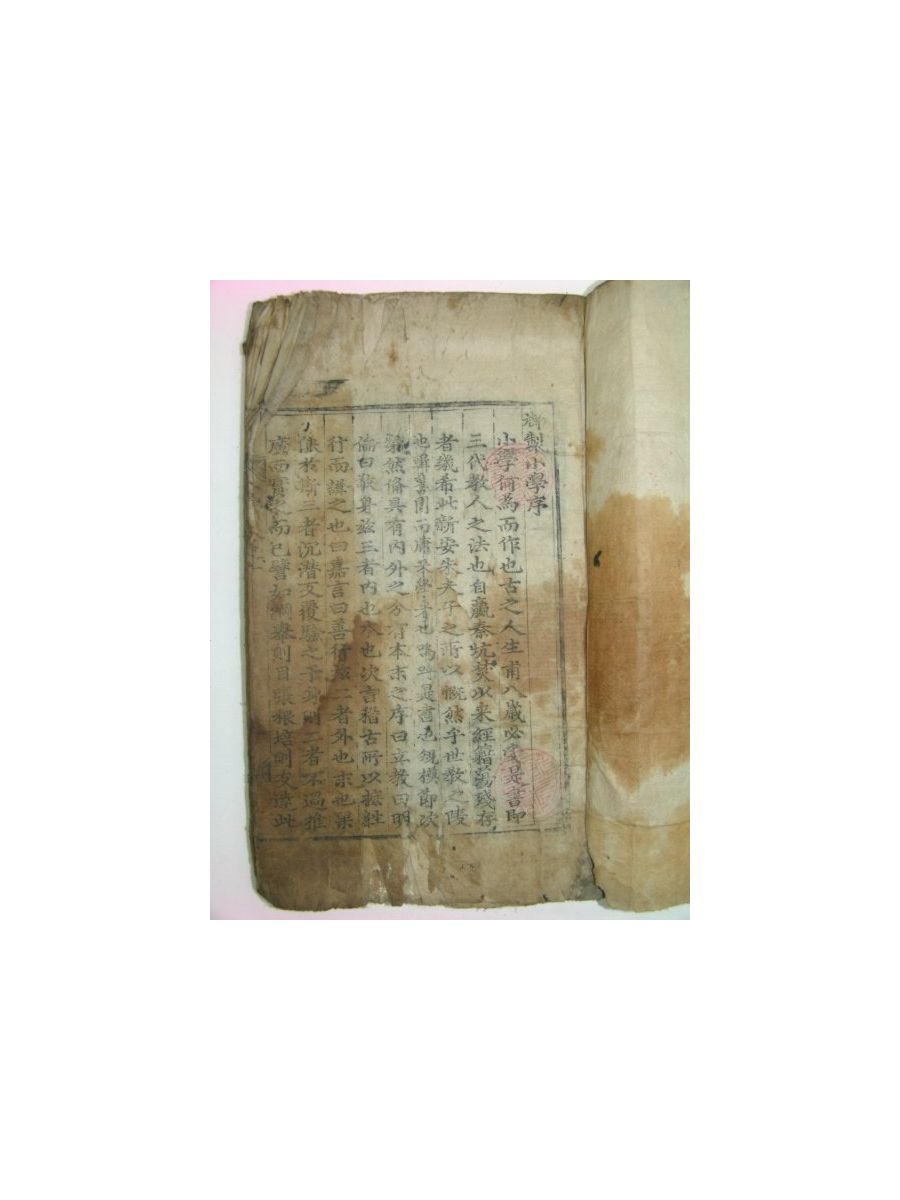 御製小學序
小學何爲而作也古之人生甫八歲必受是書即
三代敎人之法也自嬴秦坑焚以來經籍蕩殘存
者幾希此新安朱夫子之所以慨然乎世敎之陵
也輯舊聞而牖來學者也嗚呼是書也規模節次
粲然備具有內外之分有本末之序曰立敎曰明
倫曰敬身玆三者內也本也次言稽古所以摭往
行而證之也曰嘉言曰善行玆二者外也末也果
能於斯三者沉潛反覆驗之于身則二者不過推
廣而實之而已譬如綱擧則目張根培則支達此